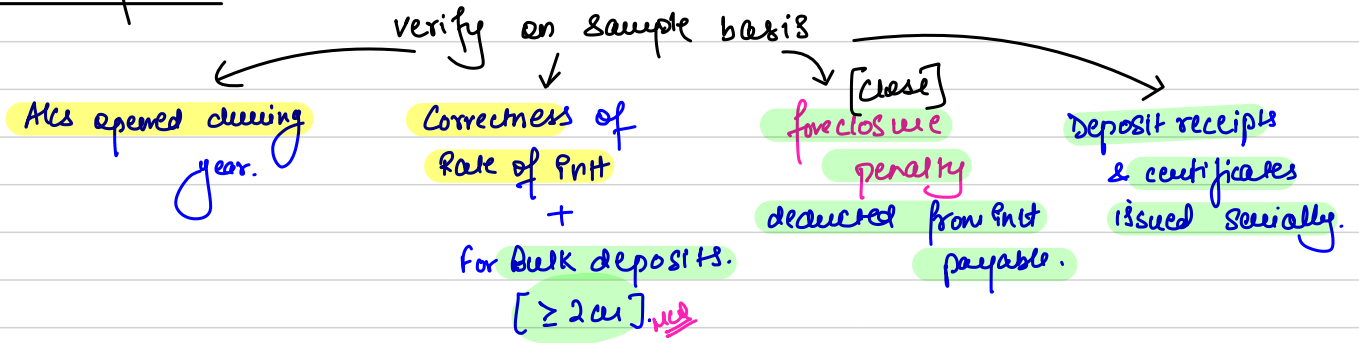 verify on sample basis
A/cs opened during
year.
Correctness of
Rate of intt
+
for Bulk deposits.
[≥ 2 cr]. MCQ
[close]
foreclosure
penalty
deducted from intt
payable.
Deposit receipts
& certificates
issued serially.